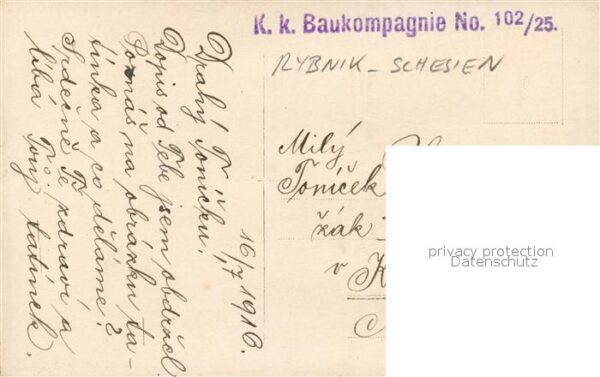 K. k. Baukompagnie No. 102/25.
RYBNIK - SCHESIEN
16/7 1916.
Drahý Toníčku.
Dopis od Tebe jsem obdržel
Poznáš na obrázku ta-
tínka a co děláme?
Srdečně Tě zdraví a
líbá Tvůj tatínek.
Milý
Toníček
žák
v
privacy protection
Datenschutz